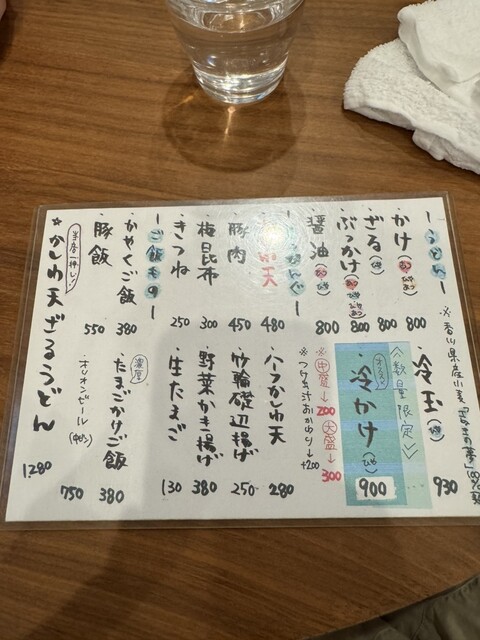 ーうどんー
・かけ 800
・ざる(ひや) 800
・ぶっかけ 800
・醤油 800
※香川県産小麦「さぬきの夢」100%
・冷玉(ひや) 930
＜数量限定＞
・冷かけ(ひや) 900
※中盛→200 大盛→300
※つけ汁おかわり→+200
天 480
・豚肉 450
・梅昆布 300
・きつね 250
・ハーフかしわ天 280
・竹輪磯辺揚げ 250
・野菜かき揚げ 380
・生たまご 130
ーご飯ものー
・かやくご飯 380
・豚飯 550
濃厚
・たまごかけご飯 380
・オリオンビール(中ビン) 750
当店一押し
★かしわ天ざるうどん 1280